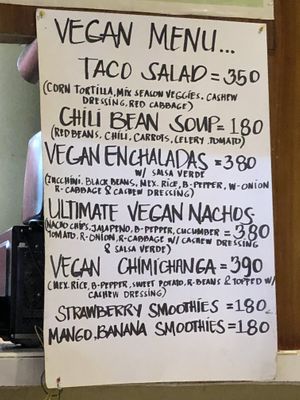 VEGAN MENU...
TACO SALAD = 350
(CORN TORTILLA, MIX SEASON VEGGIES, CASHEW
DRESSING, RED CABBAGE)
CHILI BEAN SOUP = 180
(RED BEANS, CHILI, CARROTS, CELERY, TOMATO)
VEGAN ENCHALADAS = 380
W/ SALSA VERDE
(ZUCCHINI, BLACK BEANS, MEX. RICE, B-PEPPER, W-ONION
R-CABBAGE & CASHEW DRESSING)
ULTIMATE VEGAN NACHOS
(NACHO CHIPS, JALAPENO, B-PEPPER, CUCUMBER = 380
TOMATO, R-ONION, R-CABBAGE W/ CASHEW DRESSING
& SALSA VERDE)
VEGAN CHIMICHANGA = 390
(MEX. RICE, B-PEPPER, SWEET POTATO, R-BEANS & TOPPED W/
CASHEW DRESSING)
STRAWBERRY SMOOTHIES = 180
MANGO, BANANA SMOOTHIES = 180